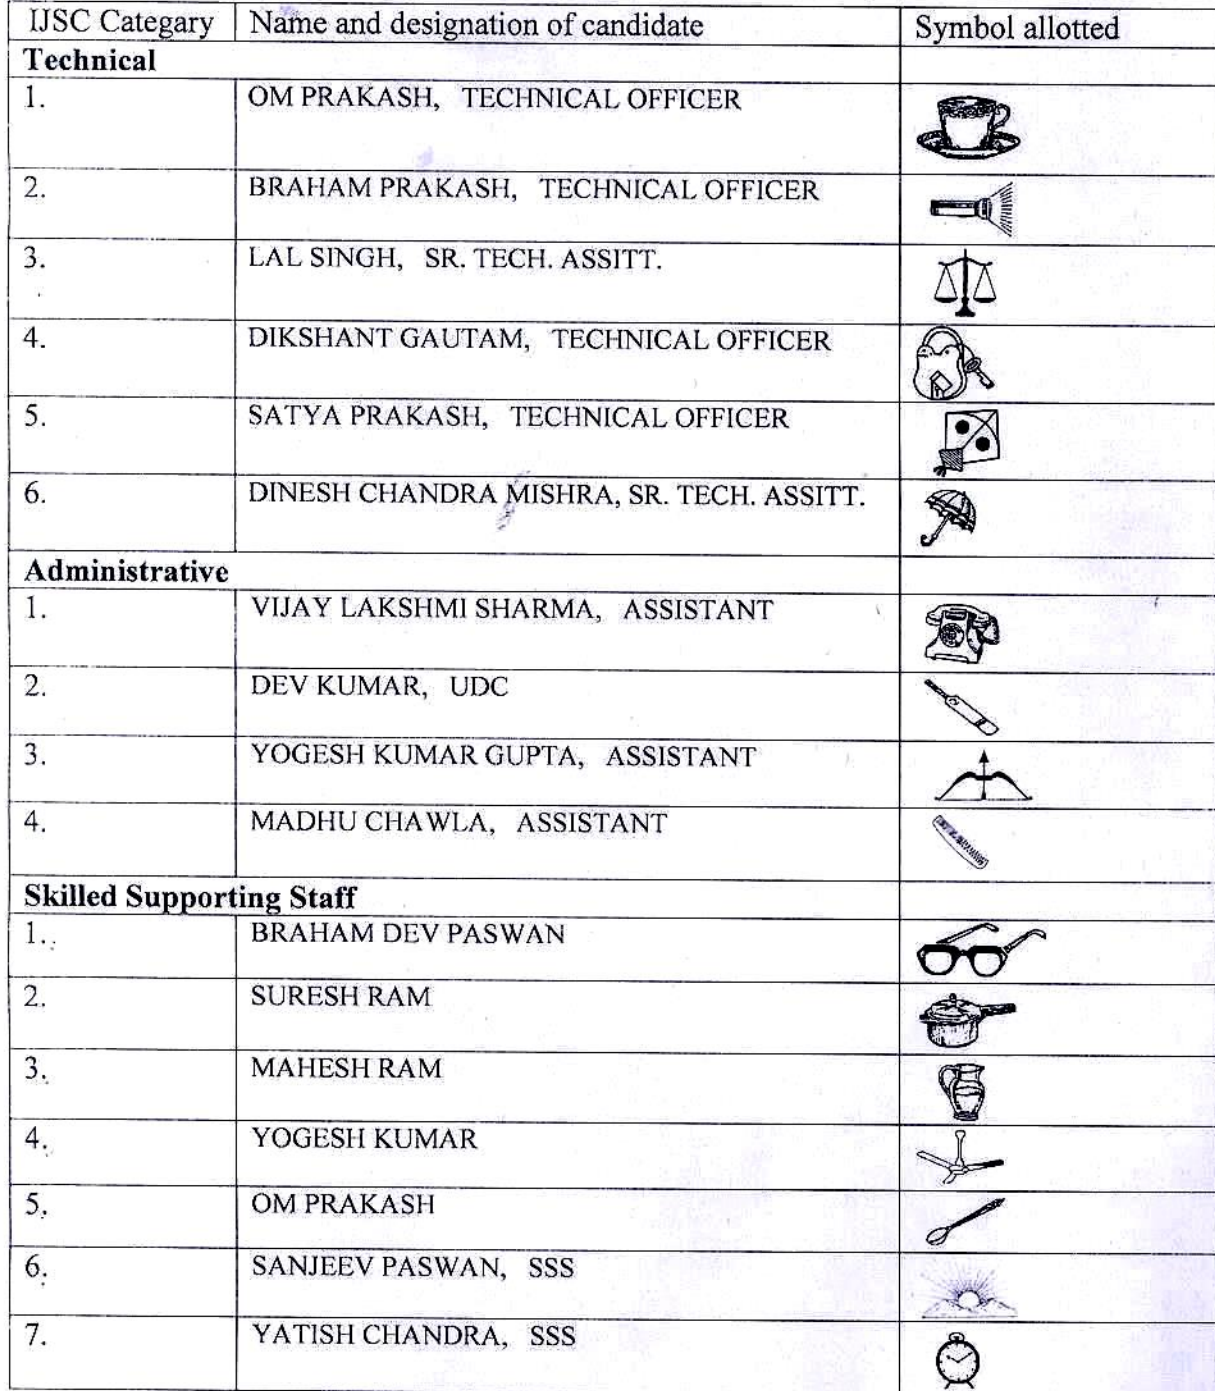 IJSC Categary Name and designation of candidate Symbol allotted
Technical
1. OM PRAKASH, TECHNICAL OFFICER
2. BRAHAM PRAKASH, TECHNICAL OFFICER
3. LAL SINGH, SR. TECH. ASSITT.
4. DIKSHANT GAUTAM, TECHNICAL OFFICER
5. SATYA PRAKASH, TECHNICAL OFFICER
6. DINESH CHANDRA MISHRA, SR. TECH. ASSITT.
Administrative
1. VIJAY LAKSHMI SHARMA, ASSISTANT
2. DEV KUMAR, UDC
3. YOGESH KUMAR GUPTA, ASSISTANT
4. MADHU CHAWLA, ASSISTANT
Skilled Supporting Staff
1. BRAHAM DEV PASWAN
2. SURESH RAM
3. MAHESH RAM
4. YOGESH KUMAR
5. OM PRAKASH
6. SANJEEV PASWAN, SSS
7. YATISH CHANDRA, SSS